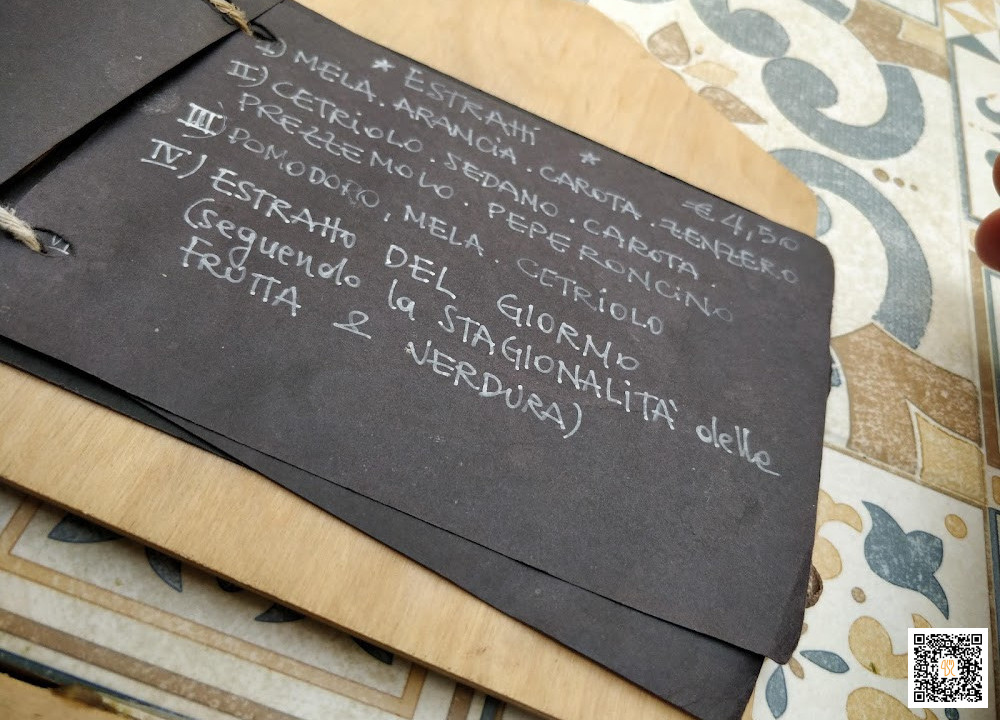 * ESTRATTI * € 4,50
I) MELA. ARANCIA. CAROTA. ZENZERO
II) CETRIOLO. SEDANO. CAROTA.
PREZZEMOLO. PEPERONCINO
III) POMODORO, MELA. CETRIOLO
IV) ESTRATTO DEL GIORNO
(seguendo la STAGIONALITÀ delle
FRUTTA & VERDURA)
VI